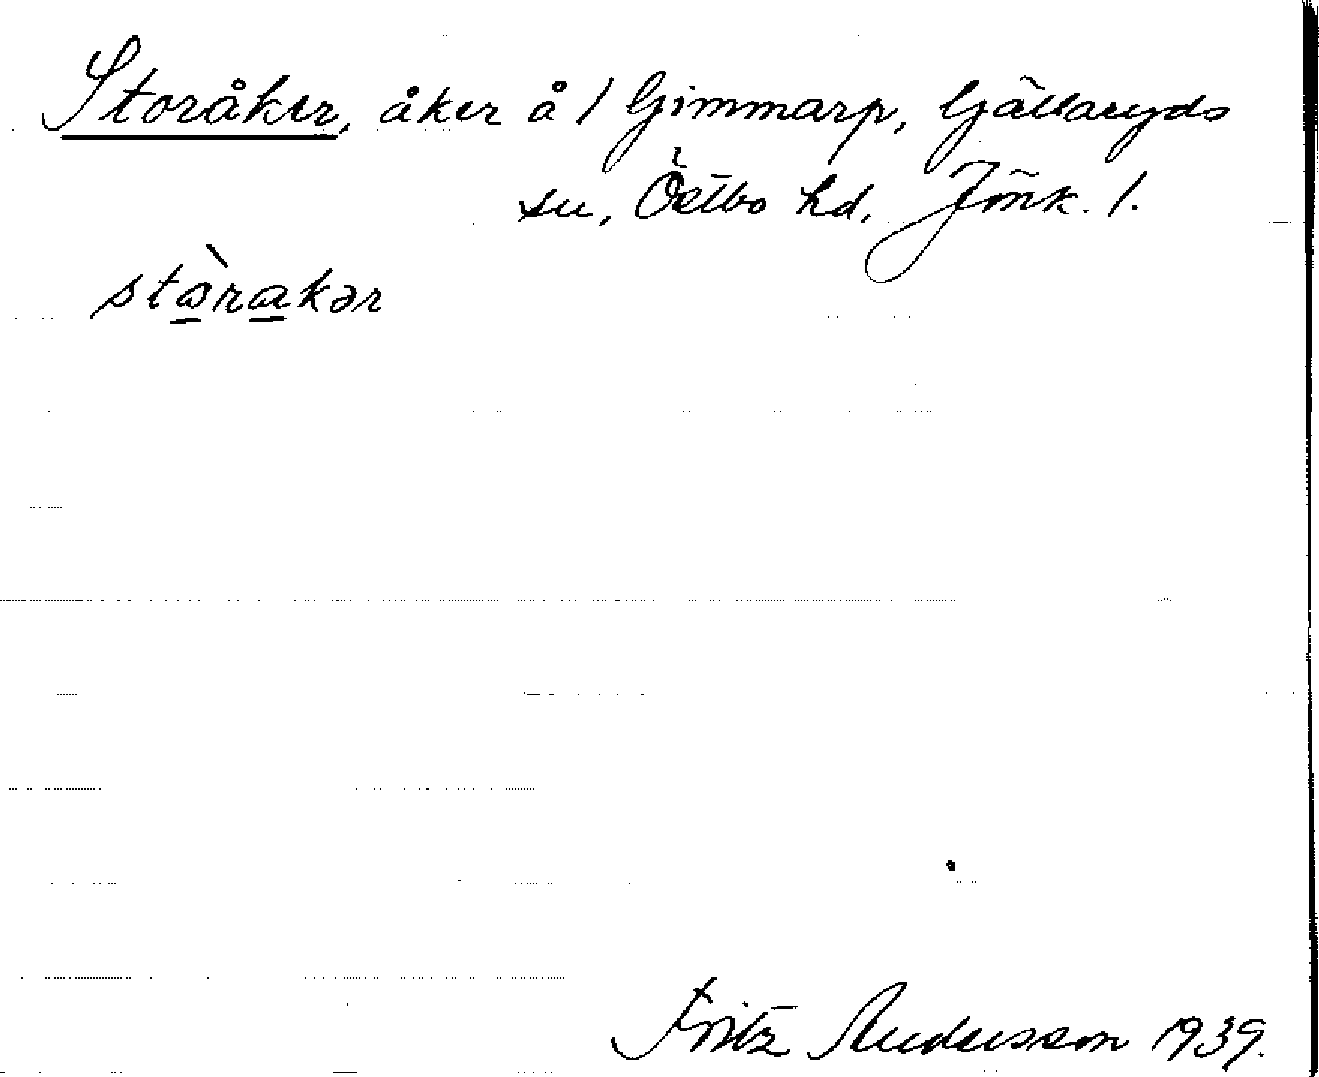 Storåker, åker å / Gimmarp, Gällaryds
sn, Östbo hd, Jönk. l.
stòrakər
Fritz Andersson 1939.